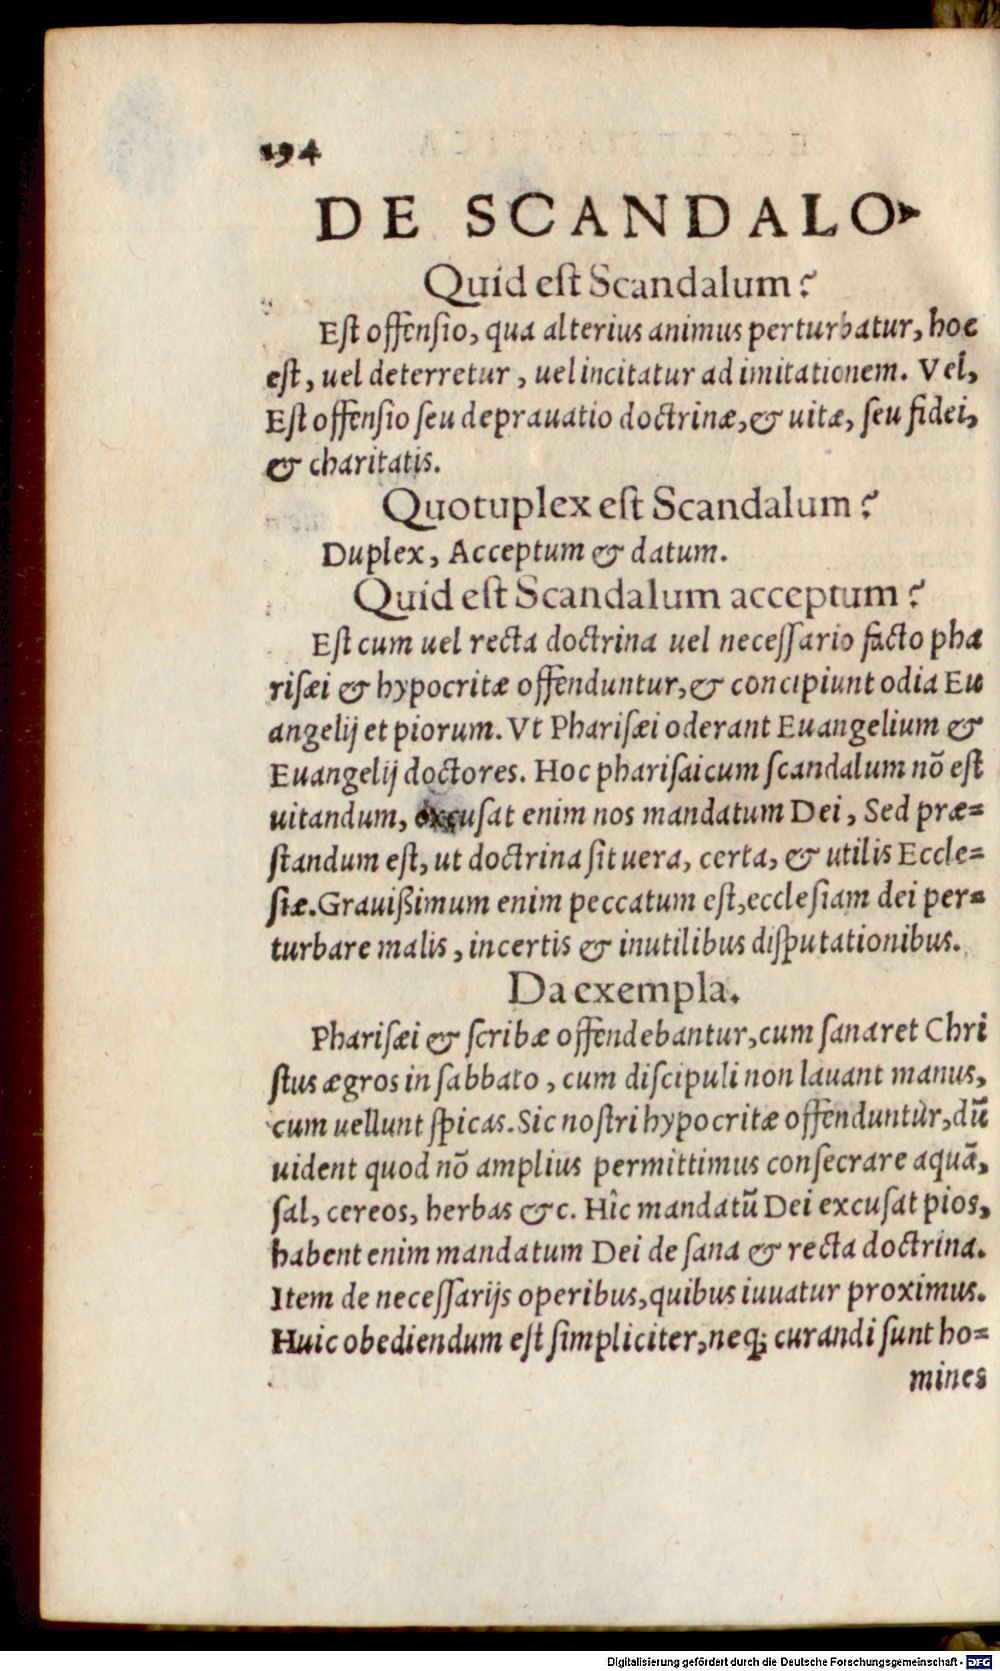 194
DE SCANDALO
Quid eſt Scandalum?
Eſt offenſio, qua alterius animus perturbatur, hoc
eſt, uel deterretur, uel incitatur ad imitationem. Vel,
Eſt offenſio ſeu deprauatio doctrinæ, & uitæ, ſeu fidei,
& charitatis.
Quotuplex eſt Scandalum?
Duplex, Acceptum & datum.
Quid eſt Scandalum acceptum?
Eſt cum uel recta doctrina uel neceſſario facto pha
riſæi & hypocritæ offenduntur, & concipiunt odia Eu
angelij et piorum. Vt Phariſæi oderant Euangelium &
Euangelij doctores. Hoc phariſaicum ſcandalum nō eſt
uitandum, excuſat enim nos mandatum Dei, Sed præ=
ſtandum eſt, ut doctrina ſit uera, certa, & utilis Eccle=
ſiæ. Grauißimum enim peccatum eſt, eccleſiam dei per=
turbare malis, incertis & inutilibus diſputationibus.
Da exempla.
Phariſæi & ſcribæ offendebantur, cum ſanaret Chri
ſtus ægros in ſabbato, cum diſcipuli non lauant manus,
cum uellunt ſpicas. Sic noſtri hypocritæ offenduntur, dū
uident quod nō amplius permittimus conſecrare aquā,
ſal, cereos, herbas &c. Hîc mandatū Dei excuſat pios,
habent enim mandatum Dei de ſana & recta doctrina.
Item de neceſſarijs operibus, quibus iuuatur proximus.
Huic obediendum eſt ſimpliciter, neq; curandi ſunt ho=
mines
Digitalisierung gefördert durch die Deutsche Forschungsgemeinschaft - DFG